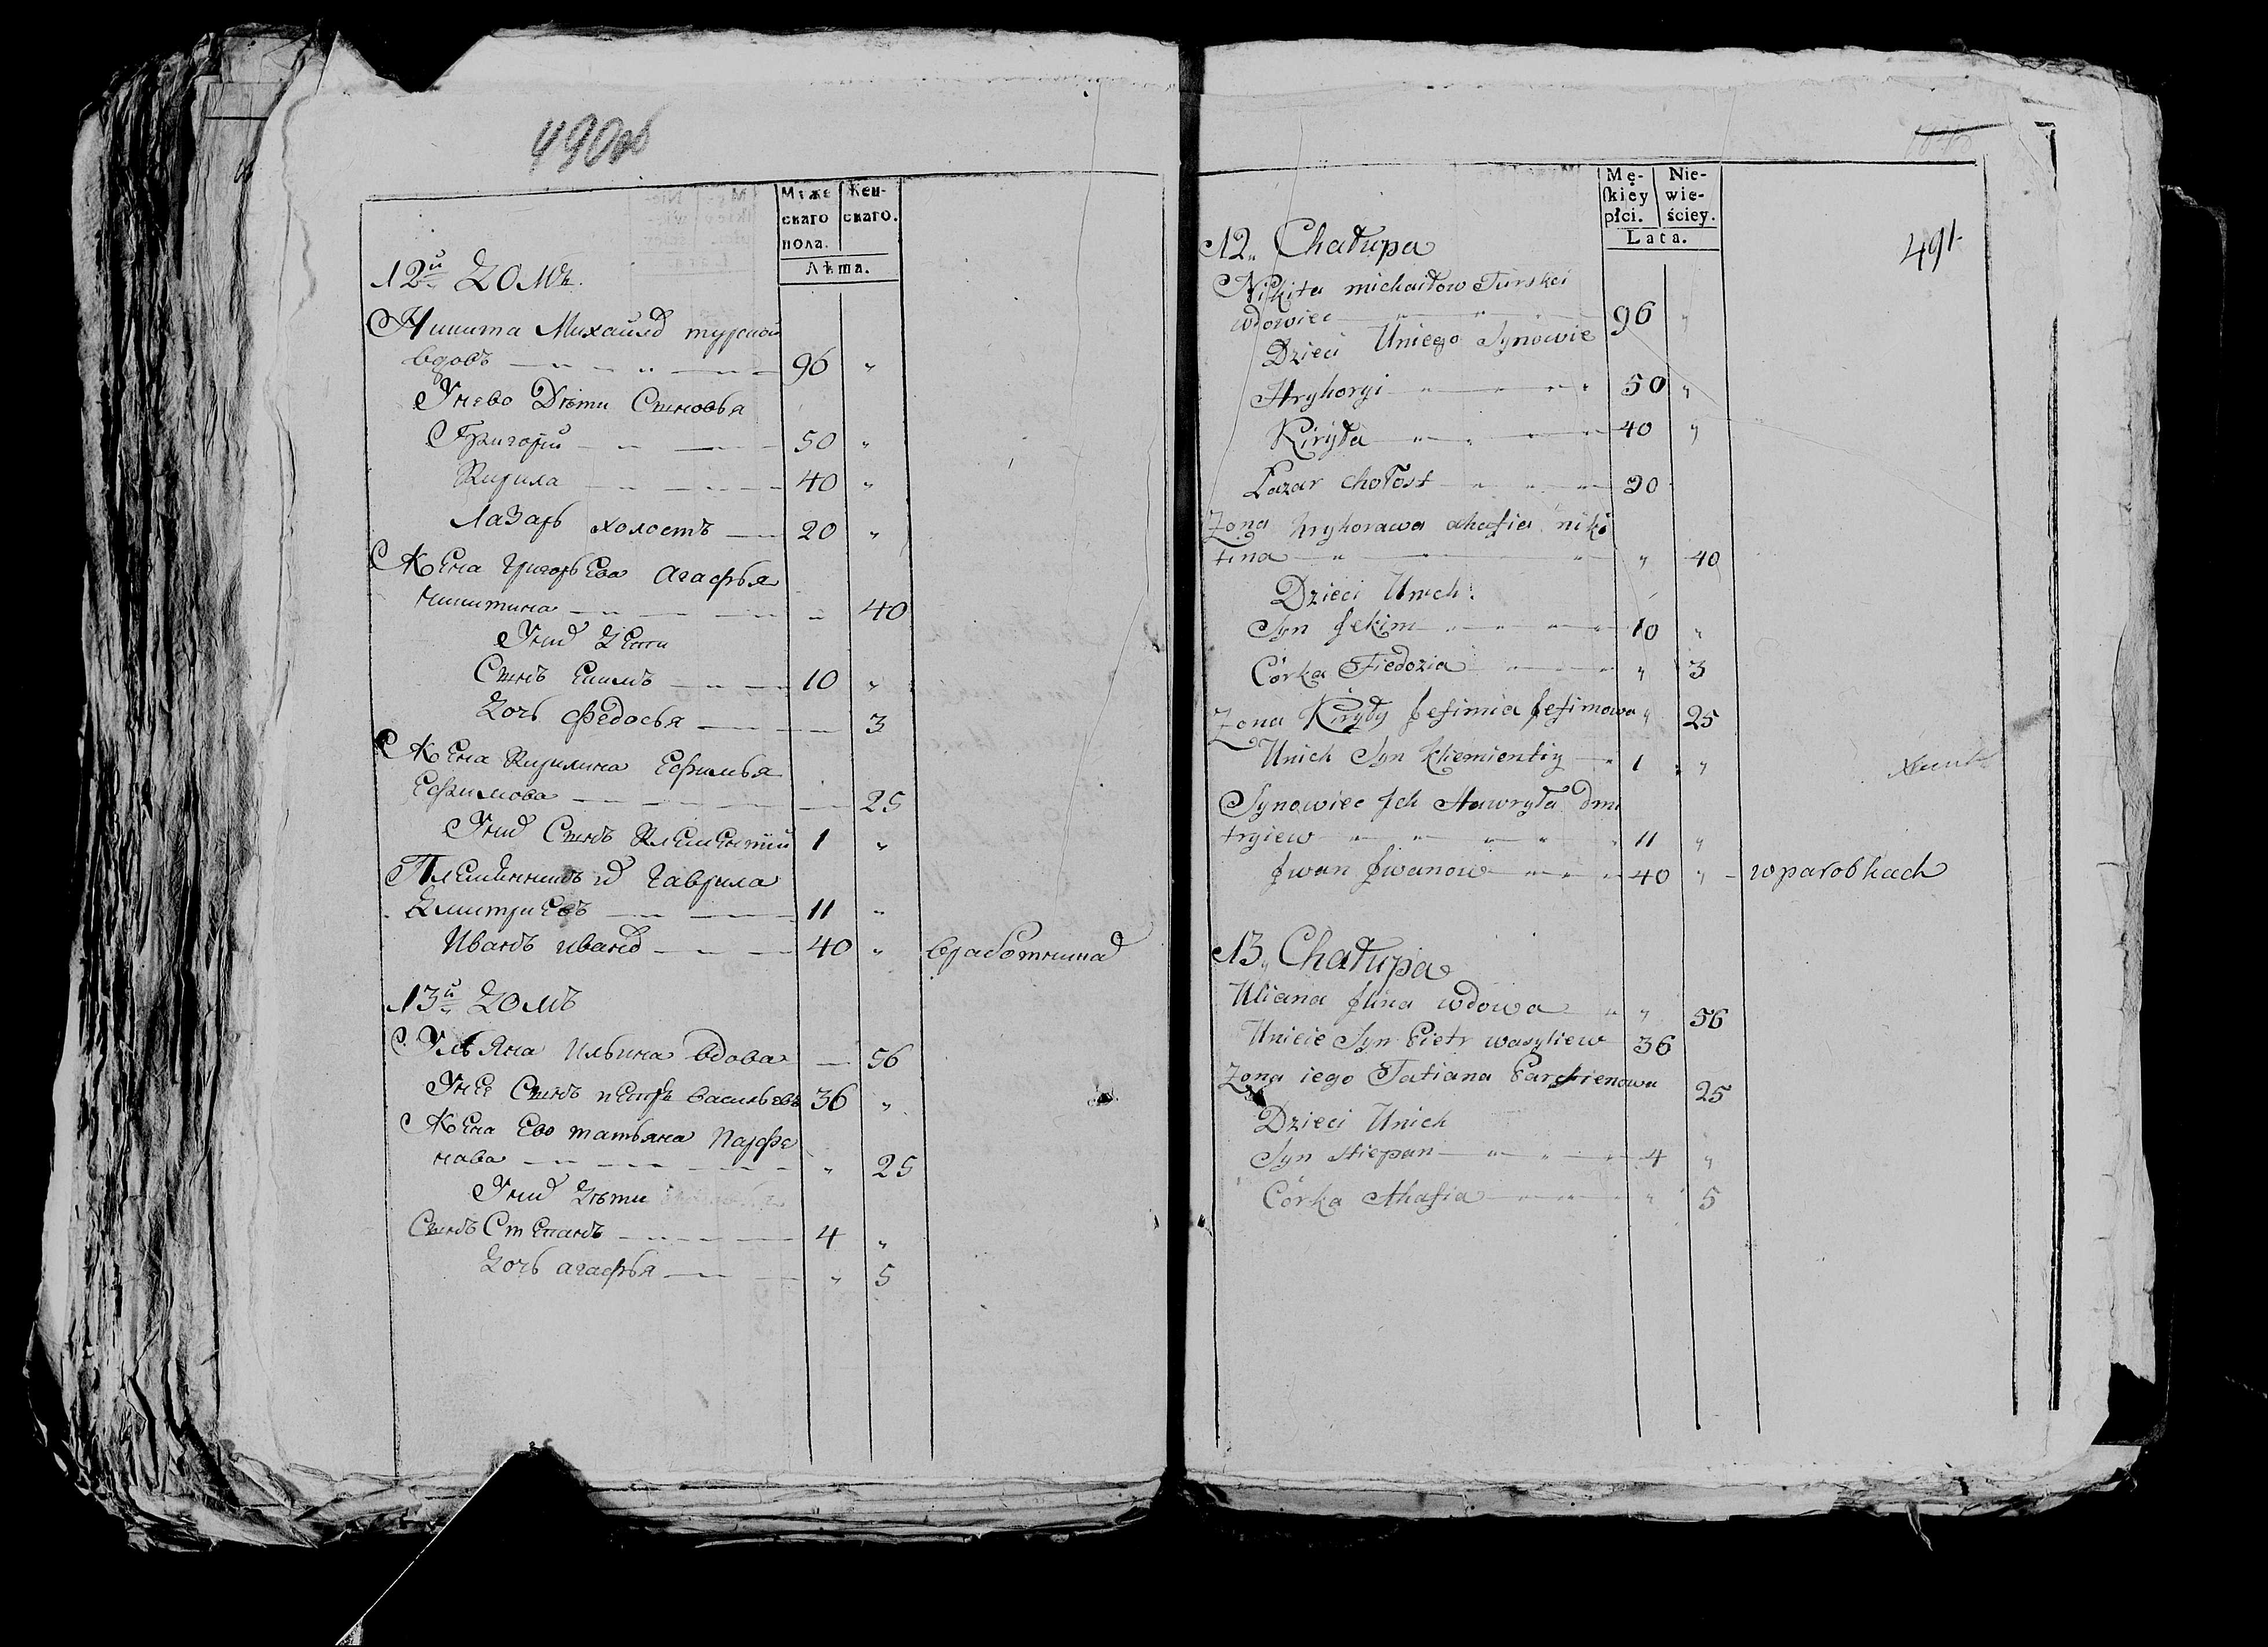 490об
Муже
скаго
пола.
Жен-
скаго.
Лѣта.
12й Домъ
Никита Михайлов турской
вдовъ 96 „
Унево Дѣти Сыновья
Григорий 50 „
Кирила 40 „
Лазарь холостъ 20 „
Жена григорьева агафья
никитина „ 40
Уних Дети
Сынъ Екимъ 10 „
Дочь Федосья 3
Жена Кирилина Ефимья
Ефимова 25
Уних Сынъ Клементий 1 „
Племянникъ их гаврила
Дмитриевъ 11 „
Иванъ иванов 40 „ вработниках
13й Домъ
Ульяна Ильина вдова 56
Унее Сынъ петръ васильевъ 36 „
Жена Ево татьяна парфе
нова „ 25
Уних Дѣти
Сынъ Степанъ 4 „
Дочь агафья „ 5
Mę-
ſkiey
płci.
Nie-
wie-
ściey.
Lata.
491
12„ Chałupa
Nikita michaiłow Turskoi
wdowiec 96 „
Dzieci Uniego Synowie
Hryhorgi 50 „
Kiryła 40 „
Łazar chołost 20
Zona hryhorawa ahafia niki
tina „ 40
Dzieci Unich
Syn Jekim 10 „
Córka Fiedozia „ 3
Zona Kiryły Jefimia Jefimowa „ 25
Unich Syn Kliemientiy 1 „
Synowiec Jch Hawryła dmi
trgiew 11 „
Jwan Jwanow 40 „ wparobkach
13„ Chałupa
Uliana Jlina wdowa „ 56
Unieie Syn Pietr wasyliew 36
Zona iego Tatiana Parchienowa 25
Dzieci Unich
Syn Stiepan 4 „
Córka Ahafia „ 5